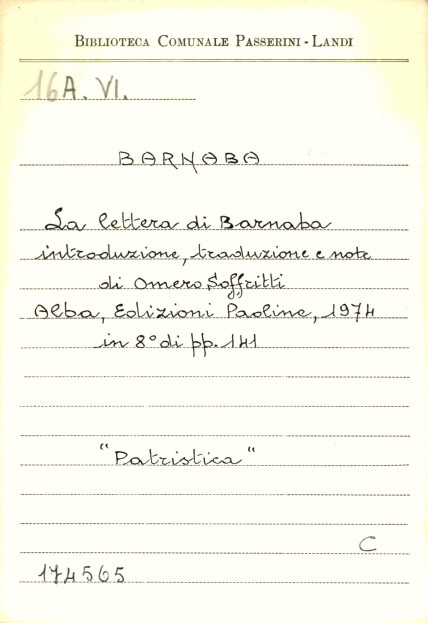 BIBLIOTECA COMUNALE PASSERINI - LANDI
16A. VI.
BARNABA
La lettera di Barnaba
introduzione, traduzione e note
di Omero Soffritti
Alba, Edizioni Paoline, 1974
in 8° di pp. 141
"Patristica"
C
174565